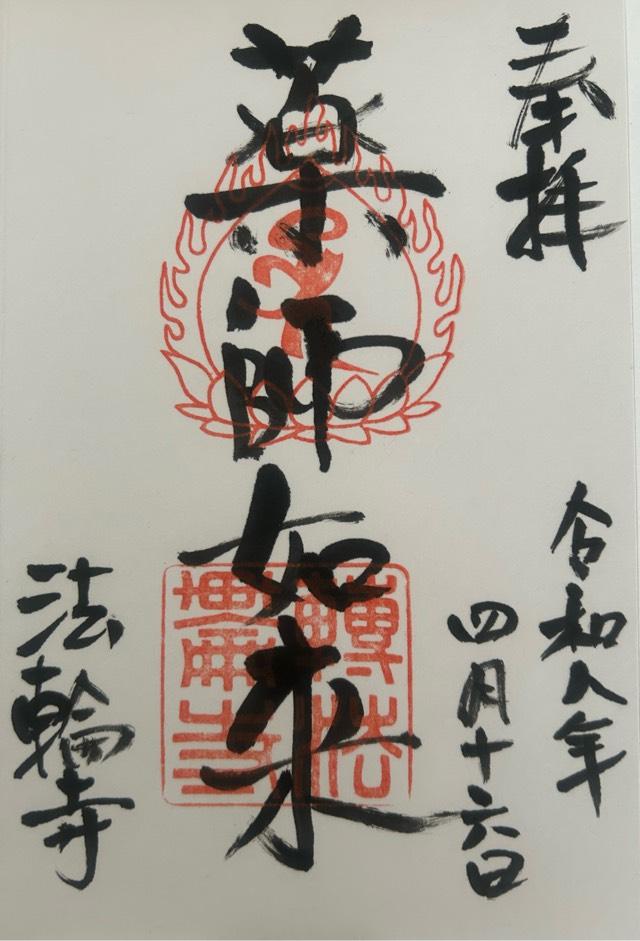 奉拝
令和八年
四月十六日
薬師如来
法輪寺